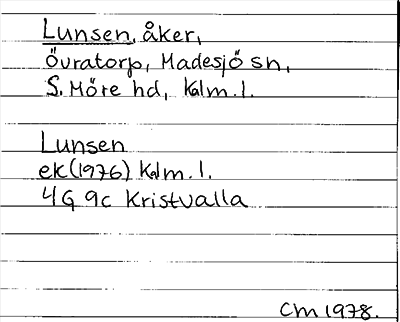 Lunsen, åker,
Övratorp, Madesjö sn,
S. Möre hd, Kalm. l.
Lunsen
ek (1976) Kalm. l.
4G 9c Kristvalla
CM 1978.